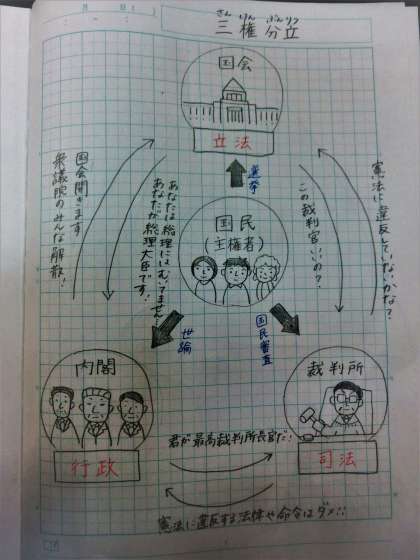 さん けん ぶん りつ
三権分立
国会
立法
選挙
国民
(主権者)
世論
国民審査
内閣
行政
裁判所
司法
国会開きます
衆議院のみんな解散!
あなたは総理にはむいてません!
あなたが総理大臣です!
この裁判官いいの?
憲法に違反していないかな?
君が最高裁判所長官だ!
憲法に違反する法律や命令はダメ!!